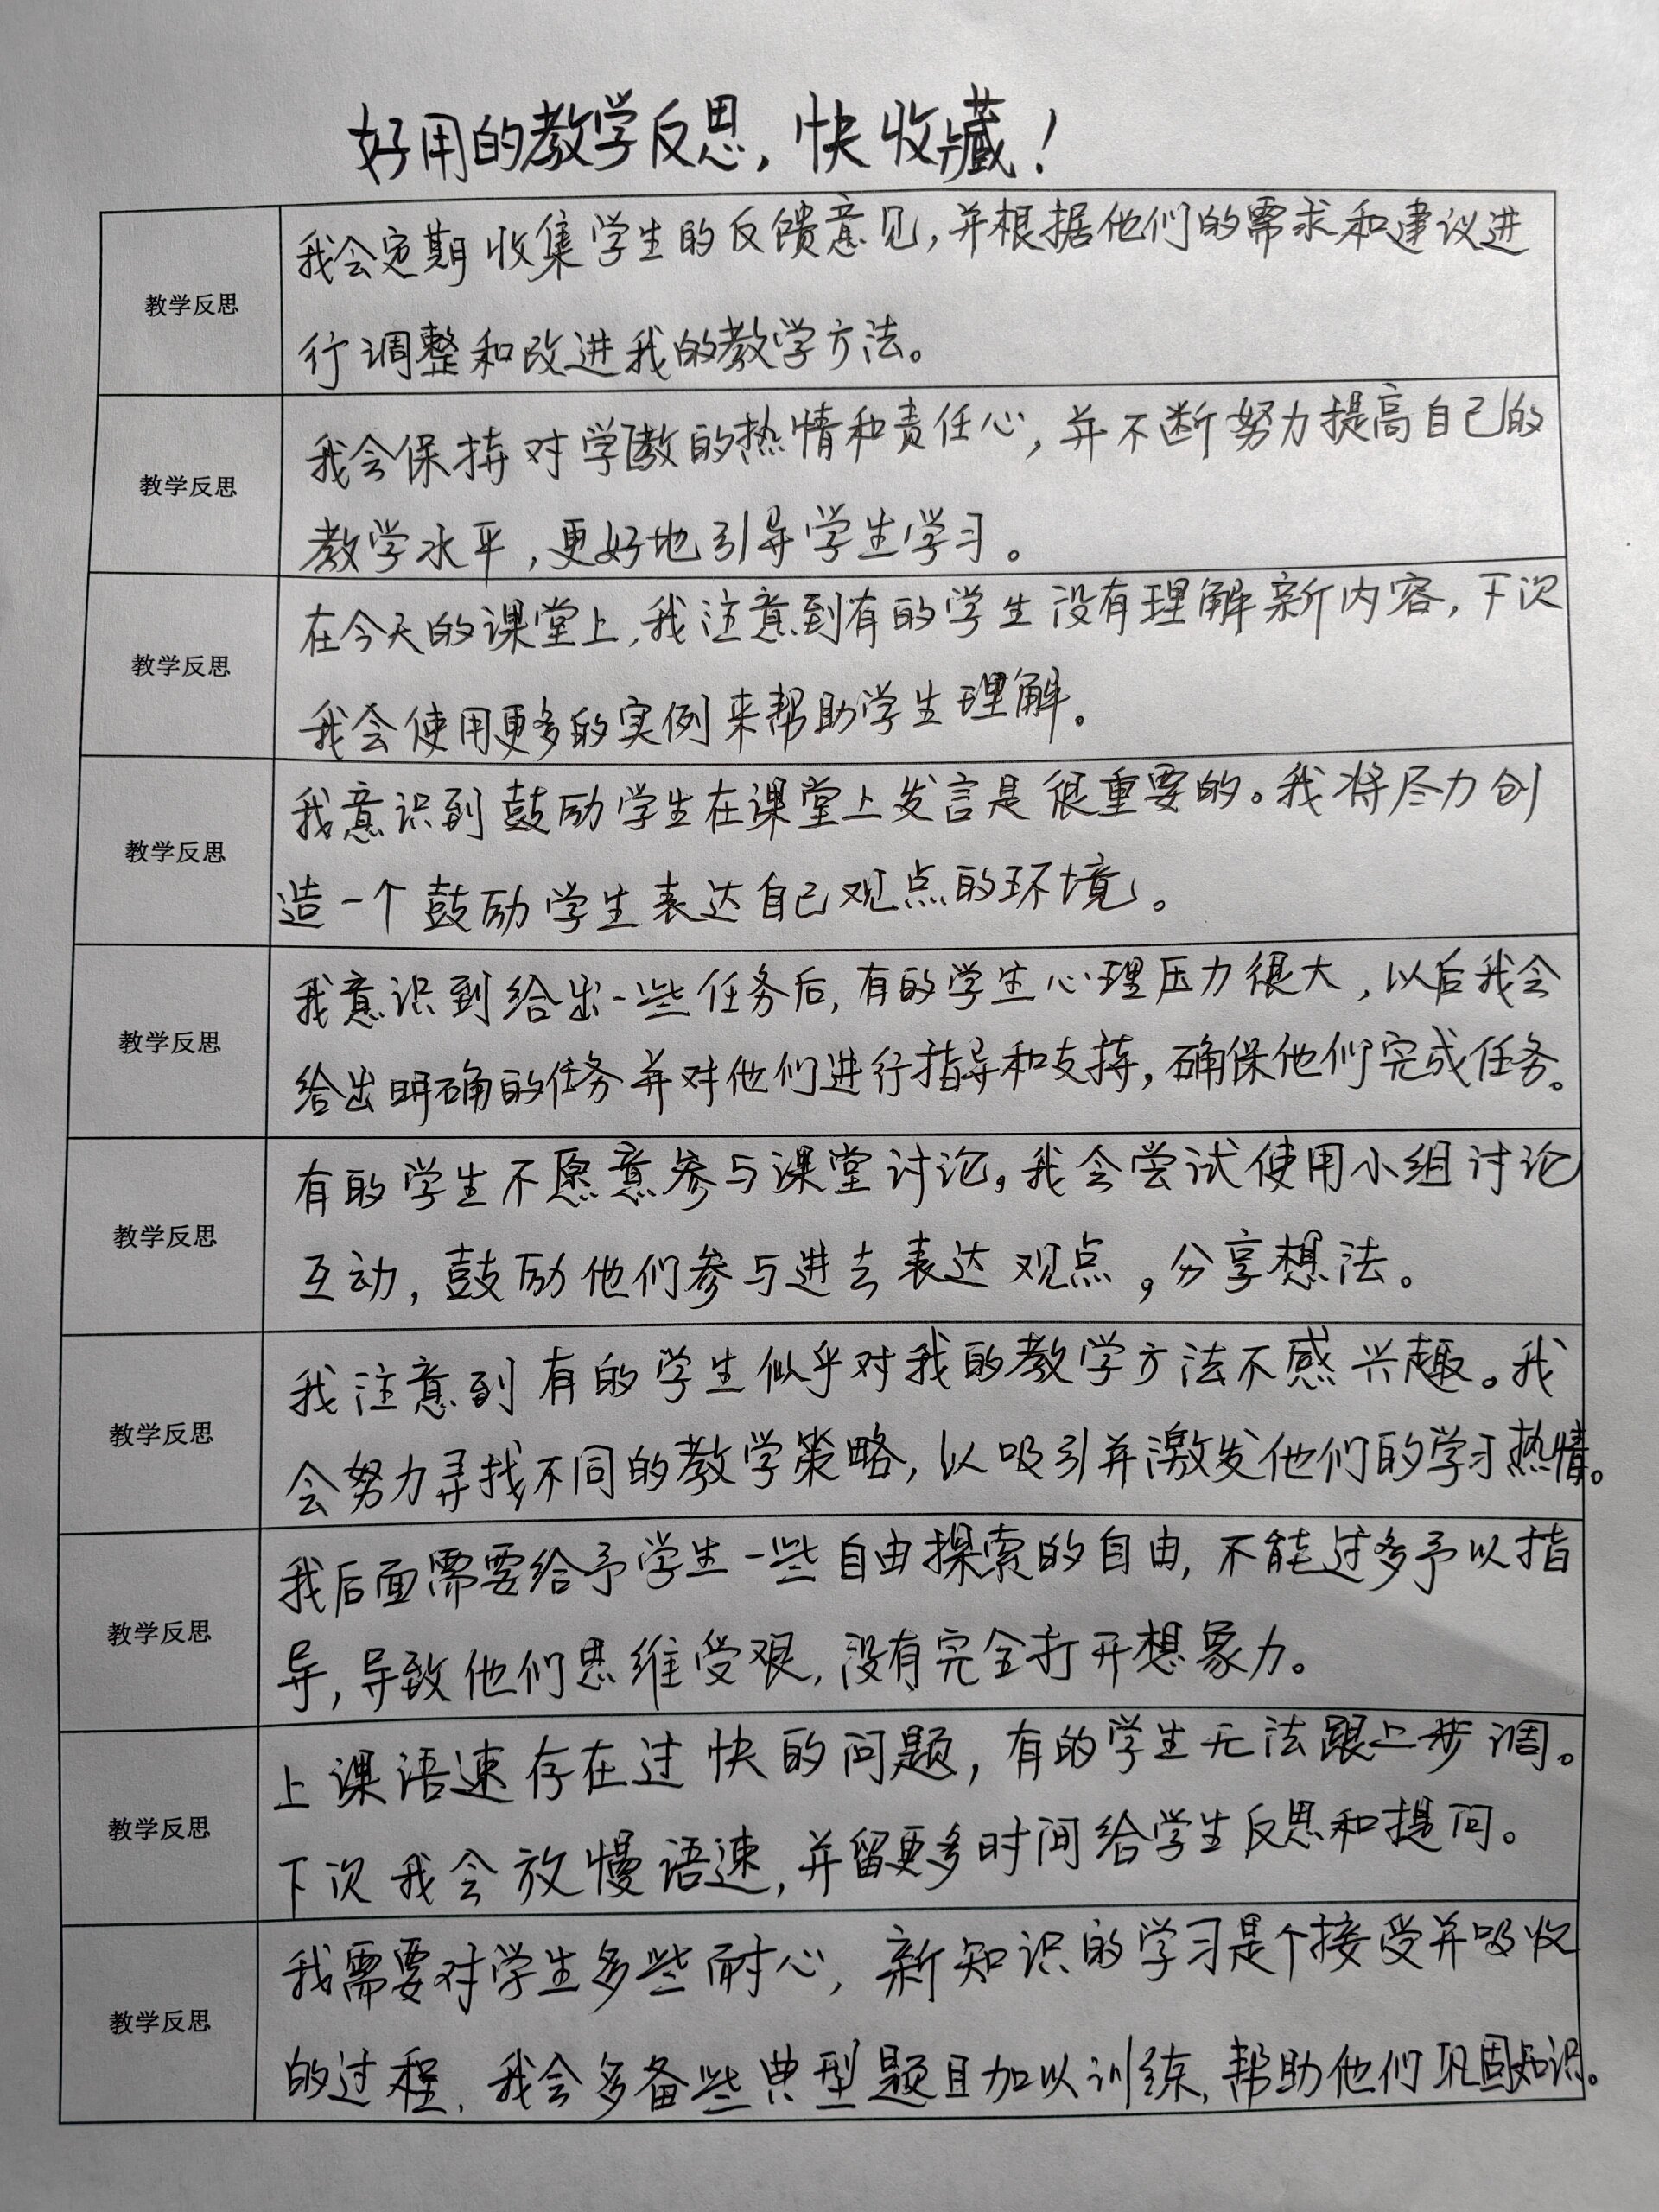 好用的教学反思,快收藏!
教学反思
我会定期收集学生的反馈意见,并根据他们的需求和建议进
行调整和改进我的教学方法。
教学反思
我会保持对学教的热情和责任心,并不断努力提高自己的
教学水平,更好地引导学生学习。
教学反思
在今天的课堂上,我注意到有的学生没有理解新内容,下次
我会使用更多的实例来帮助学生理解。
教学反思
我意识到鼓励学生在课堂上发言是很重要的。我将尽力创
造一个鼓励学生表达自己观点的环境。
教学反思
我意识到给出一些任务后,有的学生心理压力很大,以后我会
给出明确的任务并对他们进行指导和支持,确保他们完成任务。
教学反思
有的学生不愿意参与课堂讨论。我会尝试使用小组讨论
互动,鼓励他们参与进去表达观点,分享想法。
教学反思
我注意到有的学生似乎对我的教学方法不感兴趣。我
会努力寻找不同的教学策略,以吸引并激发他们的学习热情。
教学反思
我后面需要给予学生一些自由探索的自由,不能过多予以指
导,导致他们思维受艰,没有完全打开想象力。
教学反思
上课语速存在过快的问题,有的学生无法跟上步调。
下次我会放慢语速,并留更多时间给学生反思和提问。
教学反思
我需要对学生多些耐心,新知识的学习是个接受并吸收
的过程,我会多备些典型题目加以训练,帮助他们巩固知识。